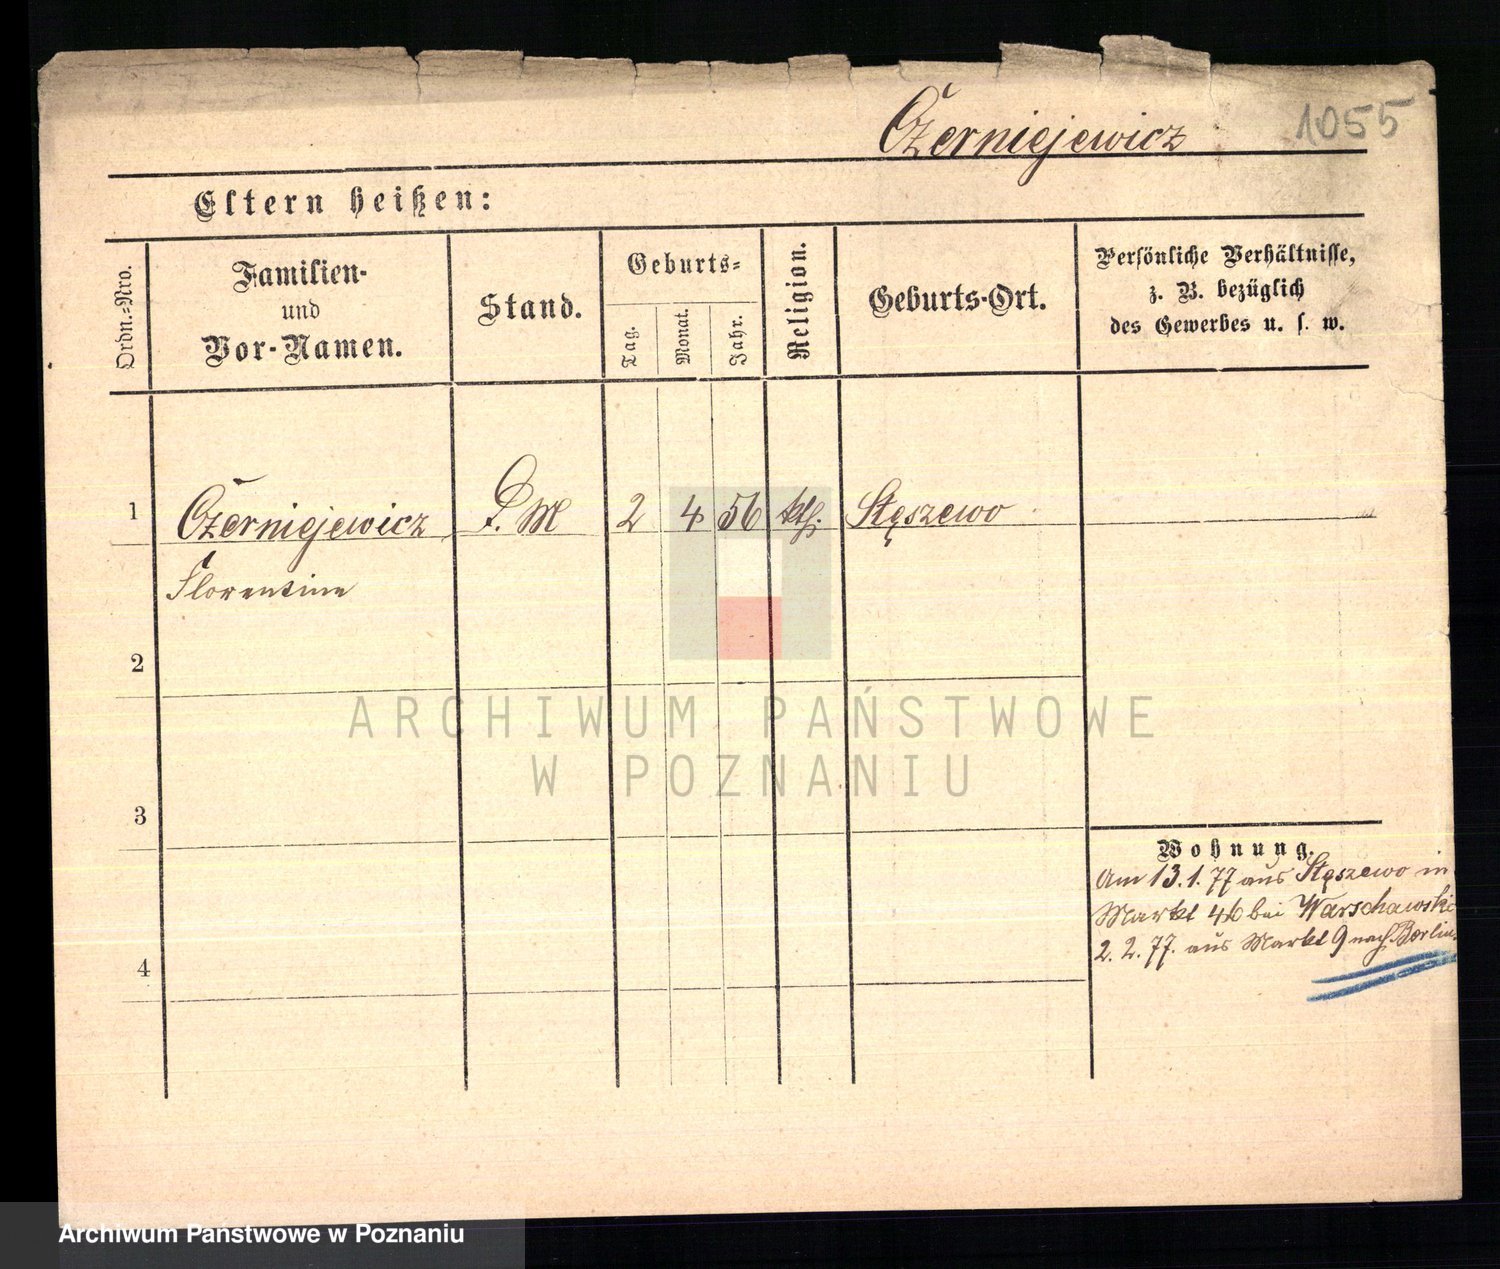 Czerniejewicz
1055
Eltern heißen:
Ordn.-Nro.
Familien-
und
Vor-Namen.
Stand.
Geburts-
Tag.
Monat.
Jahr.
Religion.
Geburts-Ort.
Persönliche Verhältnisse,
z. B. bezüglich
des Gewerbes u. s. w.
1 Czerniejewicz D. M 2 4 56 kth. Stęszewo
Florentine
2
3
4
Wohnung.
Am 13.1.77 aus Stęszewo in
Markt 46 bei Warschawski
2.2.77. aus Markt 9 nach Berlin.
ARCHIWUM PAŃSTWOWE
W POZNANIU
Archiwum Państwowe w Poznaniu